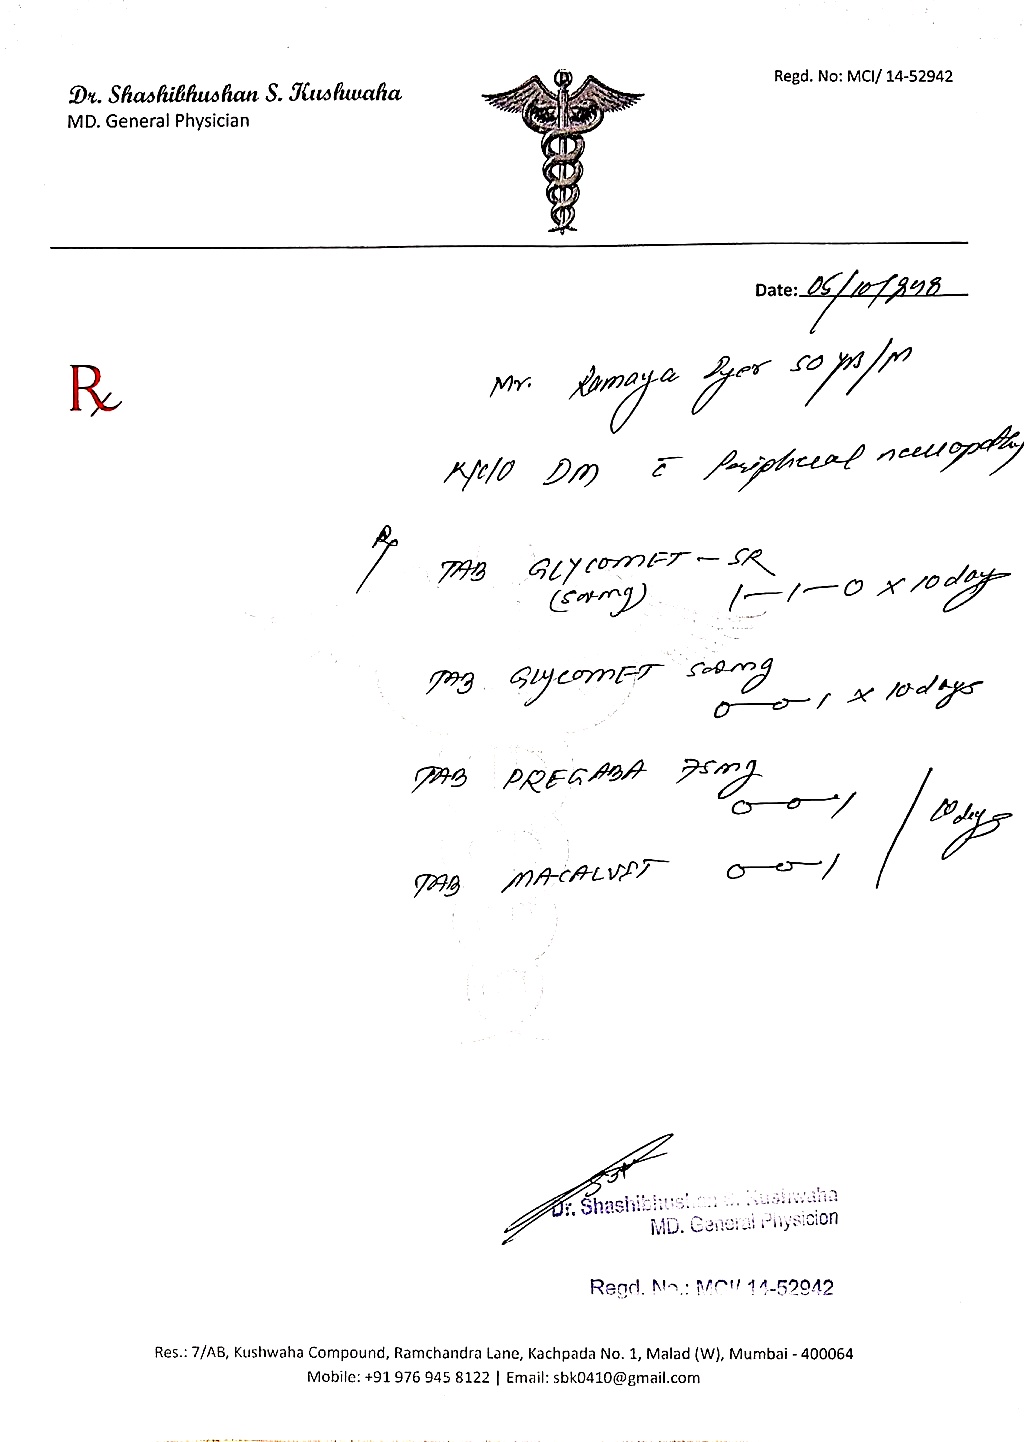 Dr. Shashibhushan S. Kushwaha
MD. General Physician
Regd. No: MCI/ 14-52942
Date: 05/10/2018
Rx
Mr. Ramaya Iyer 50 yrs/M
K/C/O DM c̄ Peripheral neuropathy
Rx
TAB GLYCOMET - SR
(500mg) 1-1-0 x 10 days
TAB GLYCOMET 500mg
0-0-1 x 10 days
TAB PREGABA 75mg
0-0-1
10 days
TAB MACALVIT 0-0-1
Dr. Shashibhushan S. Kushwaha
MD. General Physicion
Regd. No.: MCI/ 14-52942
Res.: 7/AB, Kushwaha Compound, Ramchandra Lane, Kachpada No. 1, Malad (W), Mumbai - 400064
Mobile: +91 976 945 8122 | Email: sbk0410@gmail.com